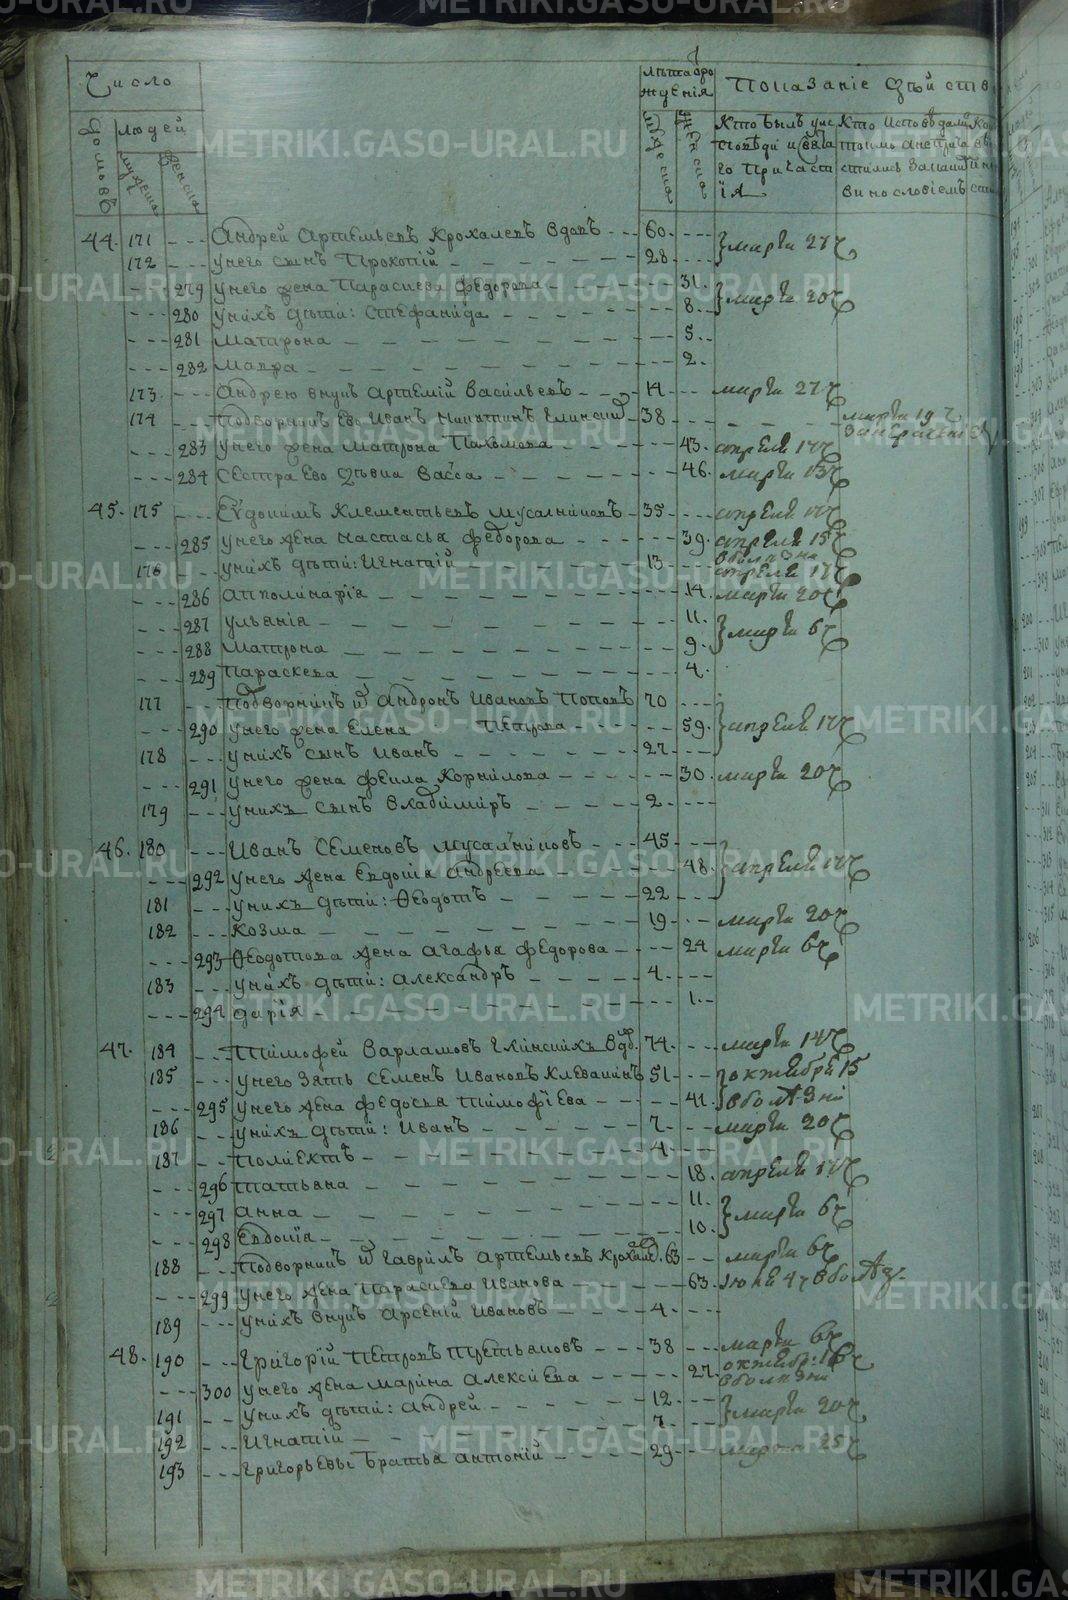 Число
Лѣта рождения
Показаніе дѣйств
домовъ
людей
мужеска
женска
мужеска
женска
Кто былъ уис
повѣди и
го Причаст
ія
Кто Исповѣдали
токмо
за
винословіемъ
44. 171 Андрей Артемьевъ Крохалевъ вдовъ 60. марта 27 ч
172 у него сынъ Прокопій 28
279 у него жена Параскева Федорова 31. марта 20 ч
280 у нихъ дѣти: Стефанида 8
281 Матрона 5
282 Мавра 2
173 Андрею внукъ Артемій Васильевъ 14 марта 27 ч
174 подворникъ Ево Иванъ Никитинъ 38 марта 19 ч
283 у него жена Матрона Пахомова 43. апреля 17 ч
284 сестра Ево дѣвка Васса 46. марта 13 ч
45. 175 Евдокимъ Клементьевъ Мусальниковъ 35 апреля 17 ч
285 у него жена Настасья Федорова 39. апреля 15 ч
в болезни
176 у нихъ дѣти: Игнатій 13 апреля 17 ч
286 Апполинарія 14. марта 20 ч
287 Ульянія 11. марта 6 ч
288 Матрона 9
289 Параскева 4
177 Подворникъ Андронъ Ивановъ Поповъ 70
290 у него жена Елена Петрова 59. апреля 17 ч
178 у нихъ сынъ Иванъ 27
291 у него жена Фекла Корнилова 30. марта 20 ч
179 у нихъ сынъ Владимиръ 2
46. 180 Иванъ Семеновъ Мусальниковъ 45
292 у него жена Евдокія Андреева 48. апреля 17 ч
181 у нихъ дѣти: Ѳеодотъ 22
182 Козма 19 марта 20 ч
293 Ѳеодотова жена Агафья Федорова 24 марта 6 ч
183 у нихъ дѣти: Александръ 4
294 Дарія 1
47. 184 Тимофей Варламовъ вдо. 74. марта 14 ч
185 у него зять Семенъ Ивановъ Клевакинъ 51 октября 15
295 у него жена Федосья Тимофіева 41. в болезни
186 у нихъ дѣти: Иванъ 7 марта 20 ч
187 Поліектъ 4
296 Татьяна 18. апреля 17 ч
297 Анна 11. марта 6 ч
298 Евдокія 10.
188 Подворникъ Гаврилъ Артемьевъ 63 марта 6 ч
299 у него жена Параскева Иванова 63.
189 у нихъ внукъ Арсеній Ивановъ 4
48. 190 Григорій Петровъ Третьяковъ 38 марта 6 ч
300 у него жена Марина Алексіева 27. октябр. 16 ч
в болезни
191 у нихъ дѣти: Андрей 12 марта 20 ч
192 Игнатій 7
193 Григорьевы Братья Антоній 29 марта 25 ч